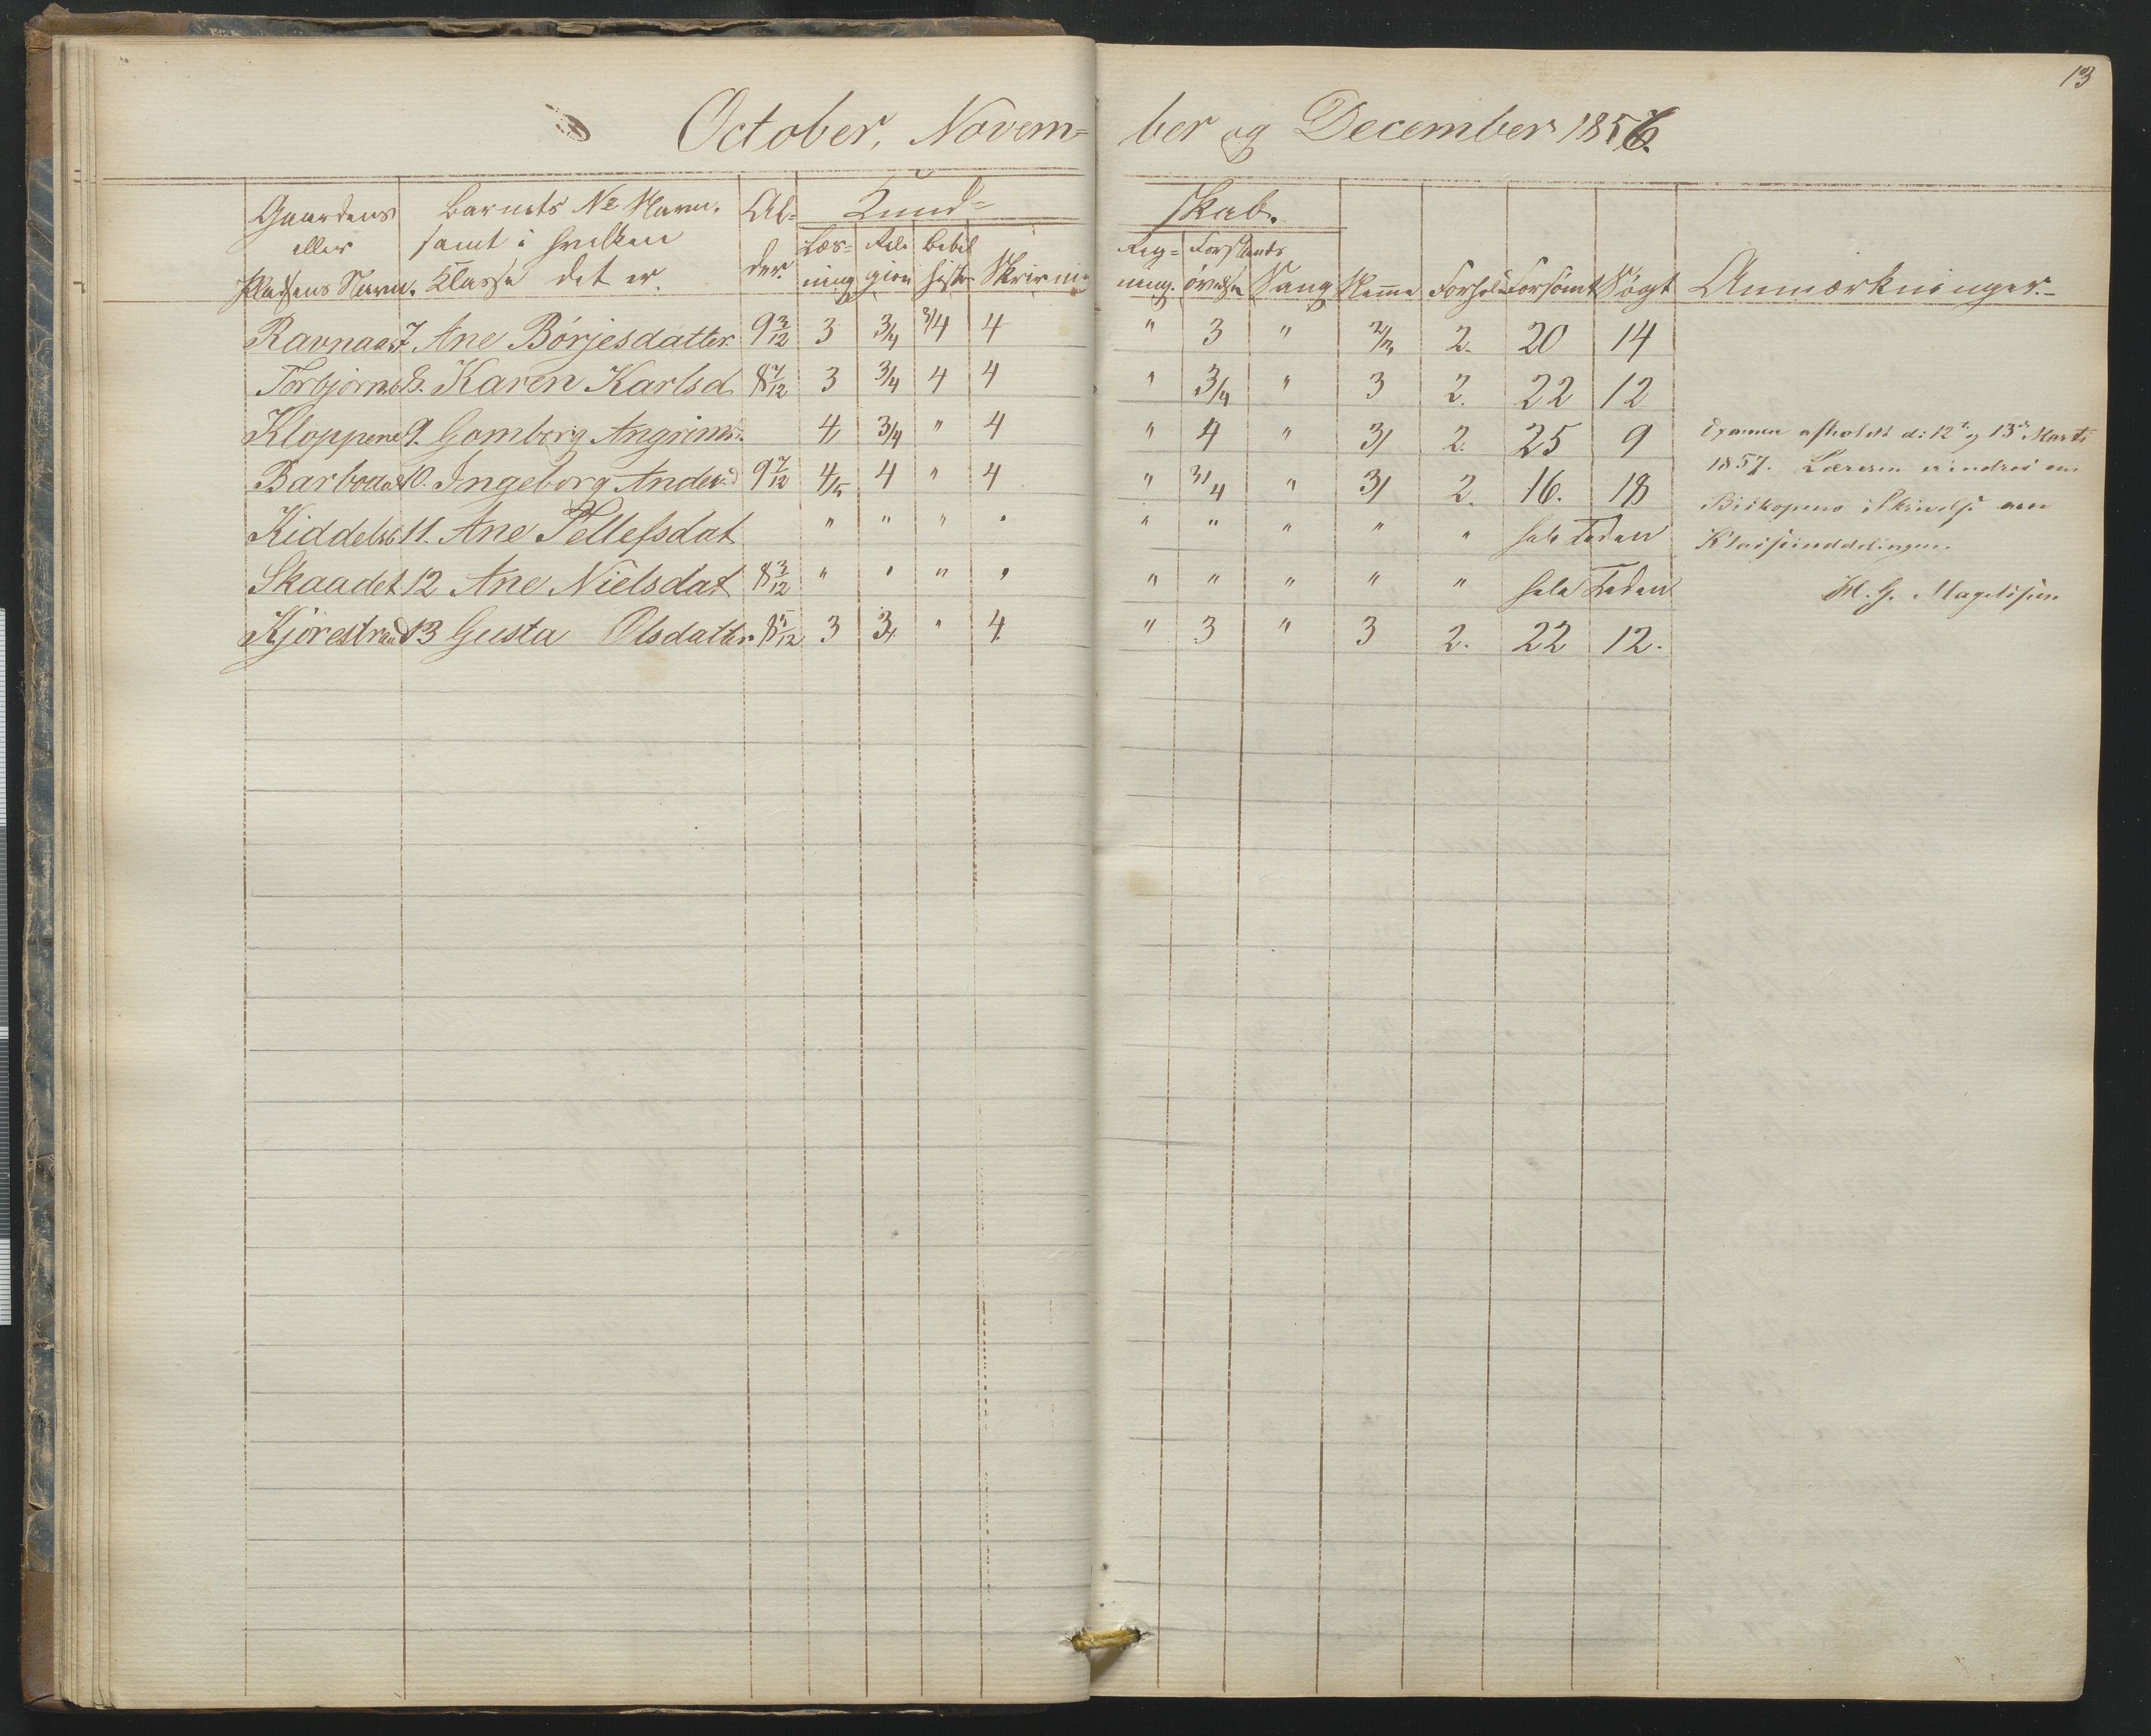 13
October, Novem= ber og December 1856.
Gaardens eller Pladsens Navn. Barnets No Navn. samt i hvilken Klasse det er. Al= der. Kund= skab.
Læs= ning Reli gion Bibel histr Skrivni= Reg= ning. Forstands øvelse Sang Nemme Forhold Forsømt Søgt Anmærkninger.
Ravnaas 7 Ane Börjesdatter. 9 3/12 3 3/4 3/4 4 " 3 " 2/3 2. 20 14
Torbjørnsb 8. Karen Karlsd 8 7/12 3 3/4 4 4 " 3/4 " 3 2. 22 12
Kloppene 9. Gomborg Angrimsd. 4 3/4 " 4 " 4 " 3/ 2. 25 9
Barboaas 10. Ingeborg Andersd 9 7/12 4/5 4 " 4 " 3/4 " 3/ 2. 16. 18
Kiddelsb 11. Ane Tellefsdat " " " " " " " " " hele Tiden
Skaadet 12 Ane Nielsdat 8 3/12 " " " " " " " " " hele Tiden
Kjörestrand 13 Gusta Olsdatter 8 5/12 3 3/4 " 4 " 3 " 3 2. 22 12.
Examen afholdt d: 12te og 13de Marts
1857. Læreren erindres om
Biskopens Skrivelse om
Klasseinddelingen.
H. G. Magelssen